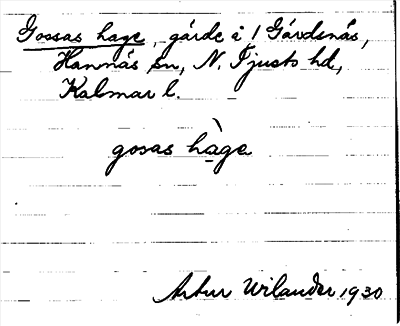 Gossas hage, gärde å 1 Gärdsnäs,
Hannäs sn, N. Tjusts hd,
Kalmar l.
gosas hàge
Artur Wilander 1930